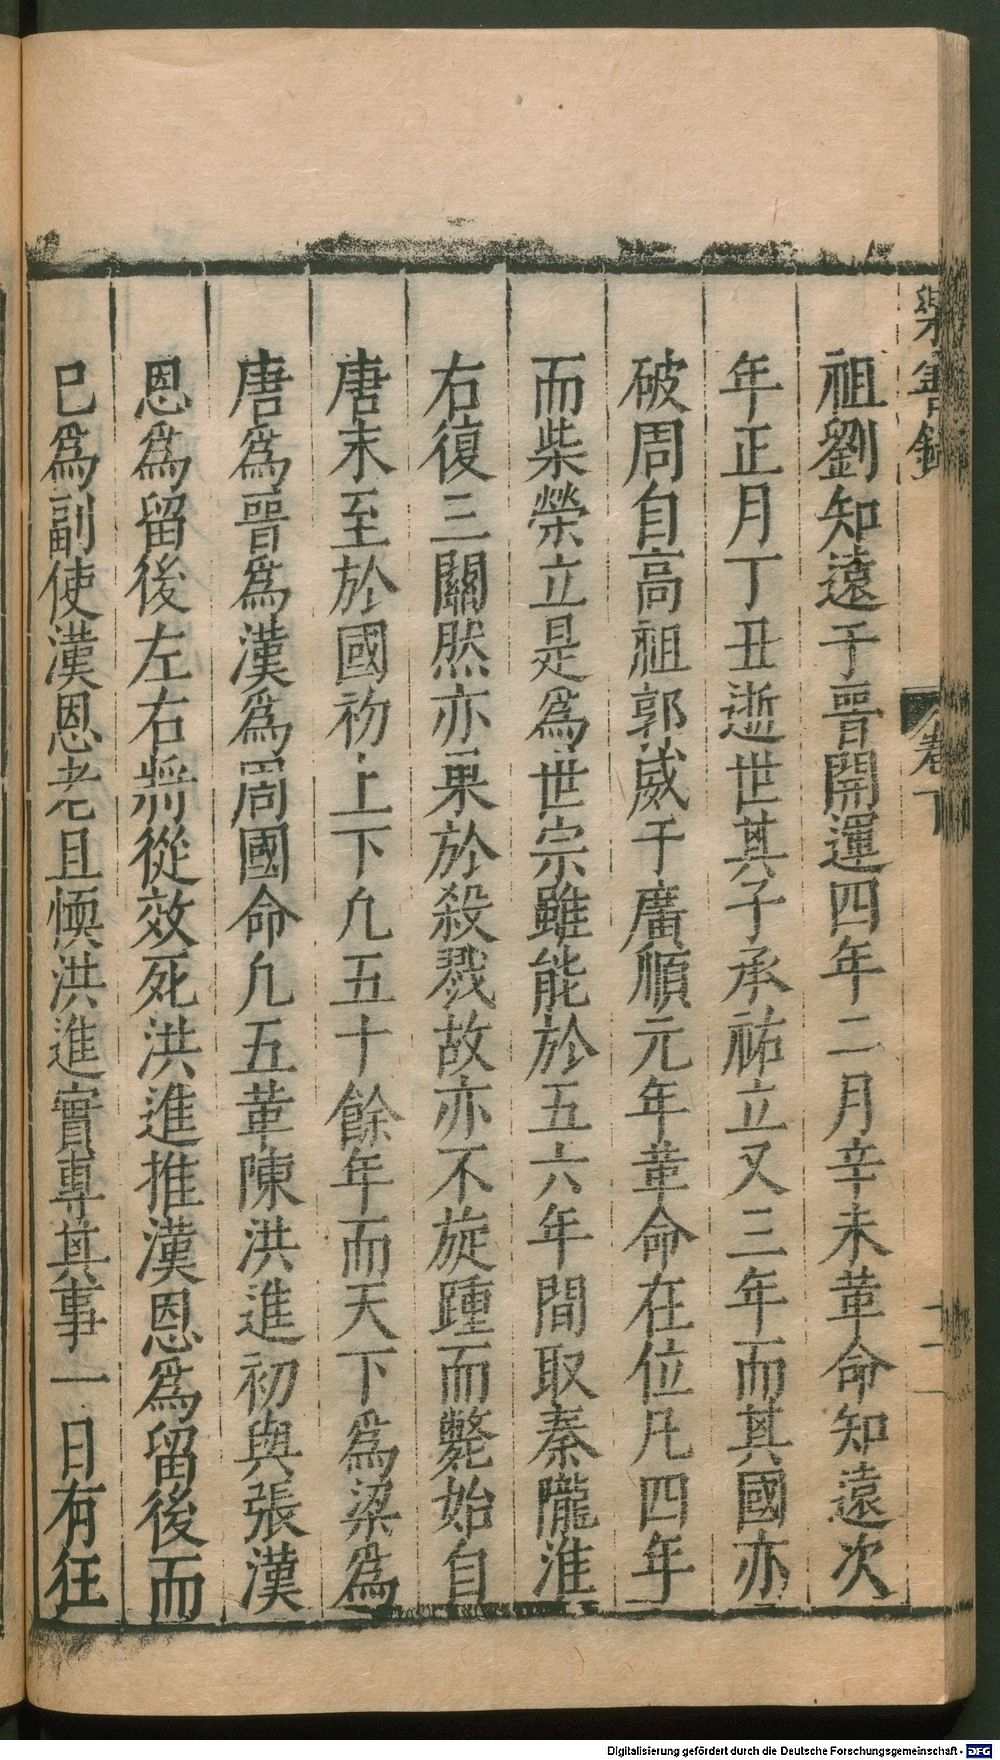 樂善錄
卷下
十一
祖劉知遠于晉開運四年二月辛未革命知遠次
年正月丁丑逝世其子承祐立又三年而其國亦
破周自高祖郭威于廣順元年革命在位凡四年
而柴榮立是為世宗雖能於五六年間取秦隴淮
右復三關然亦果於殺戮故亦不旋踵而斃始自
唐末至於國初上下凢五十餘年而天下為梁為
唐為晉為漢為周國命凢五革陳洪進初與張漢
恩為留後左右將從效死洪進推漢恩為留後而
已為副使漢恩老且愞洪進實專其事一日有狂
Digitalisierung gefördert durch die Deutsche Forschungsgemeinschaft - DFG